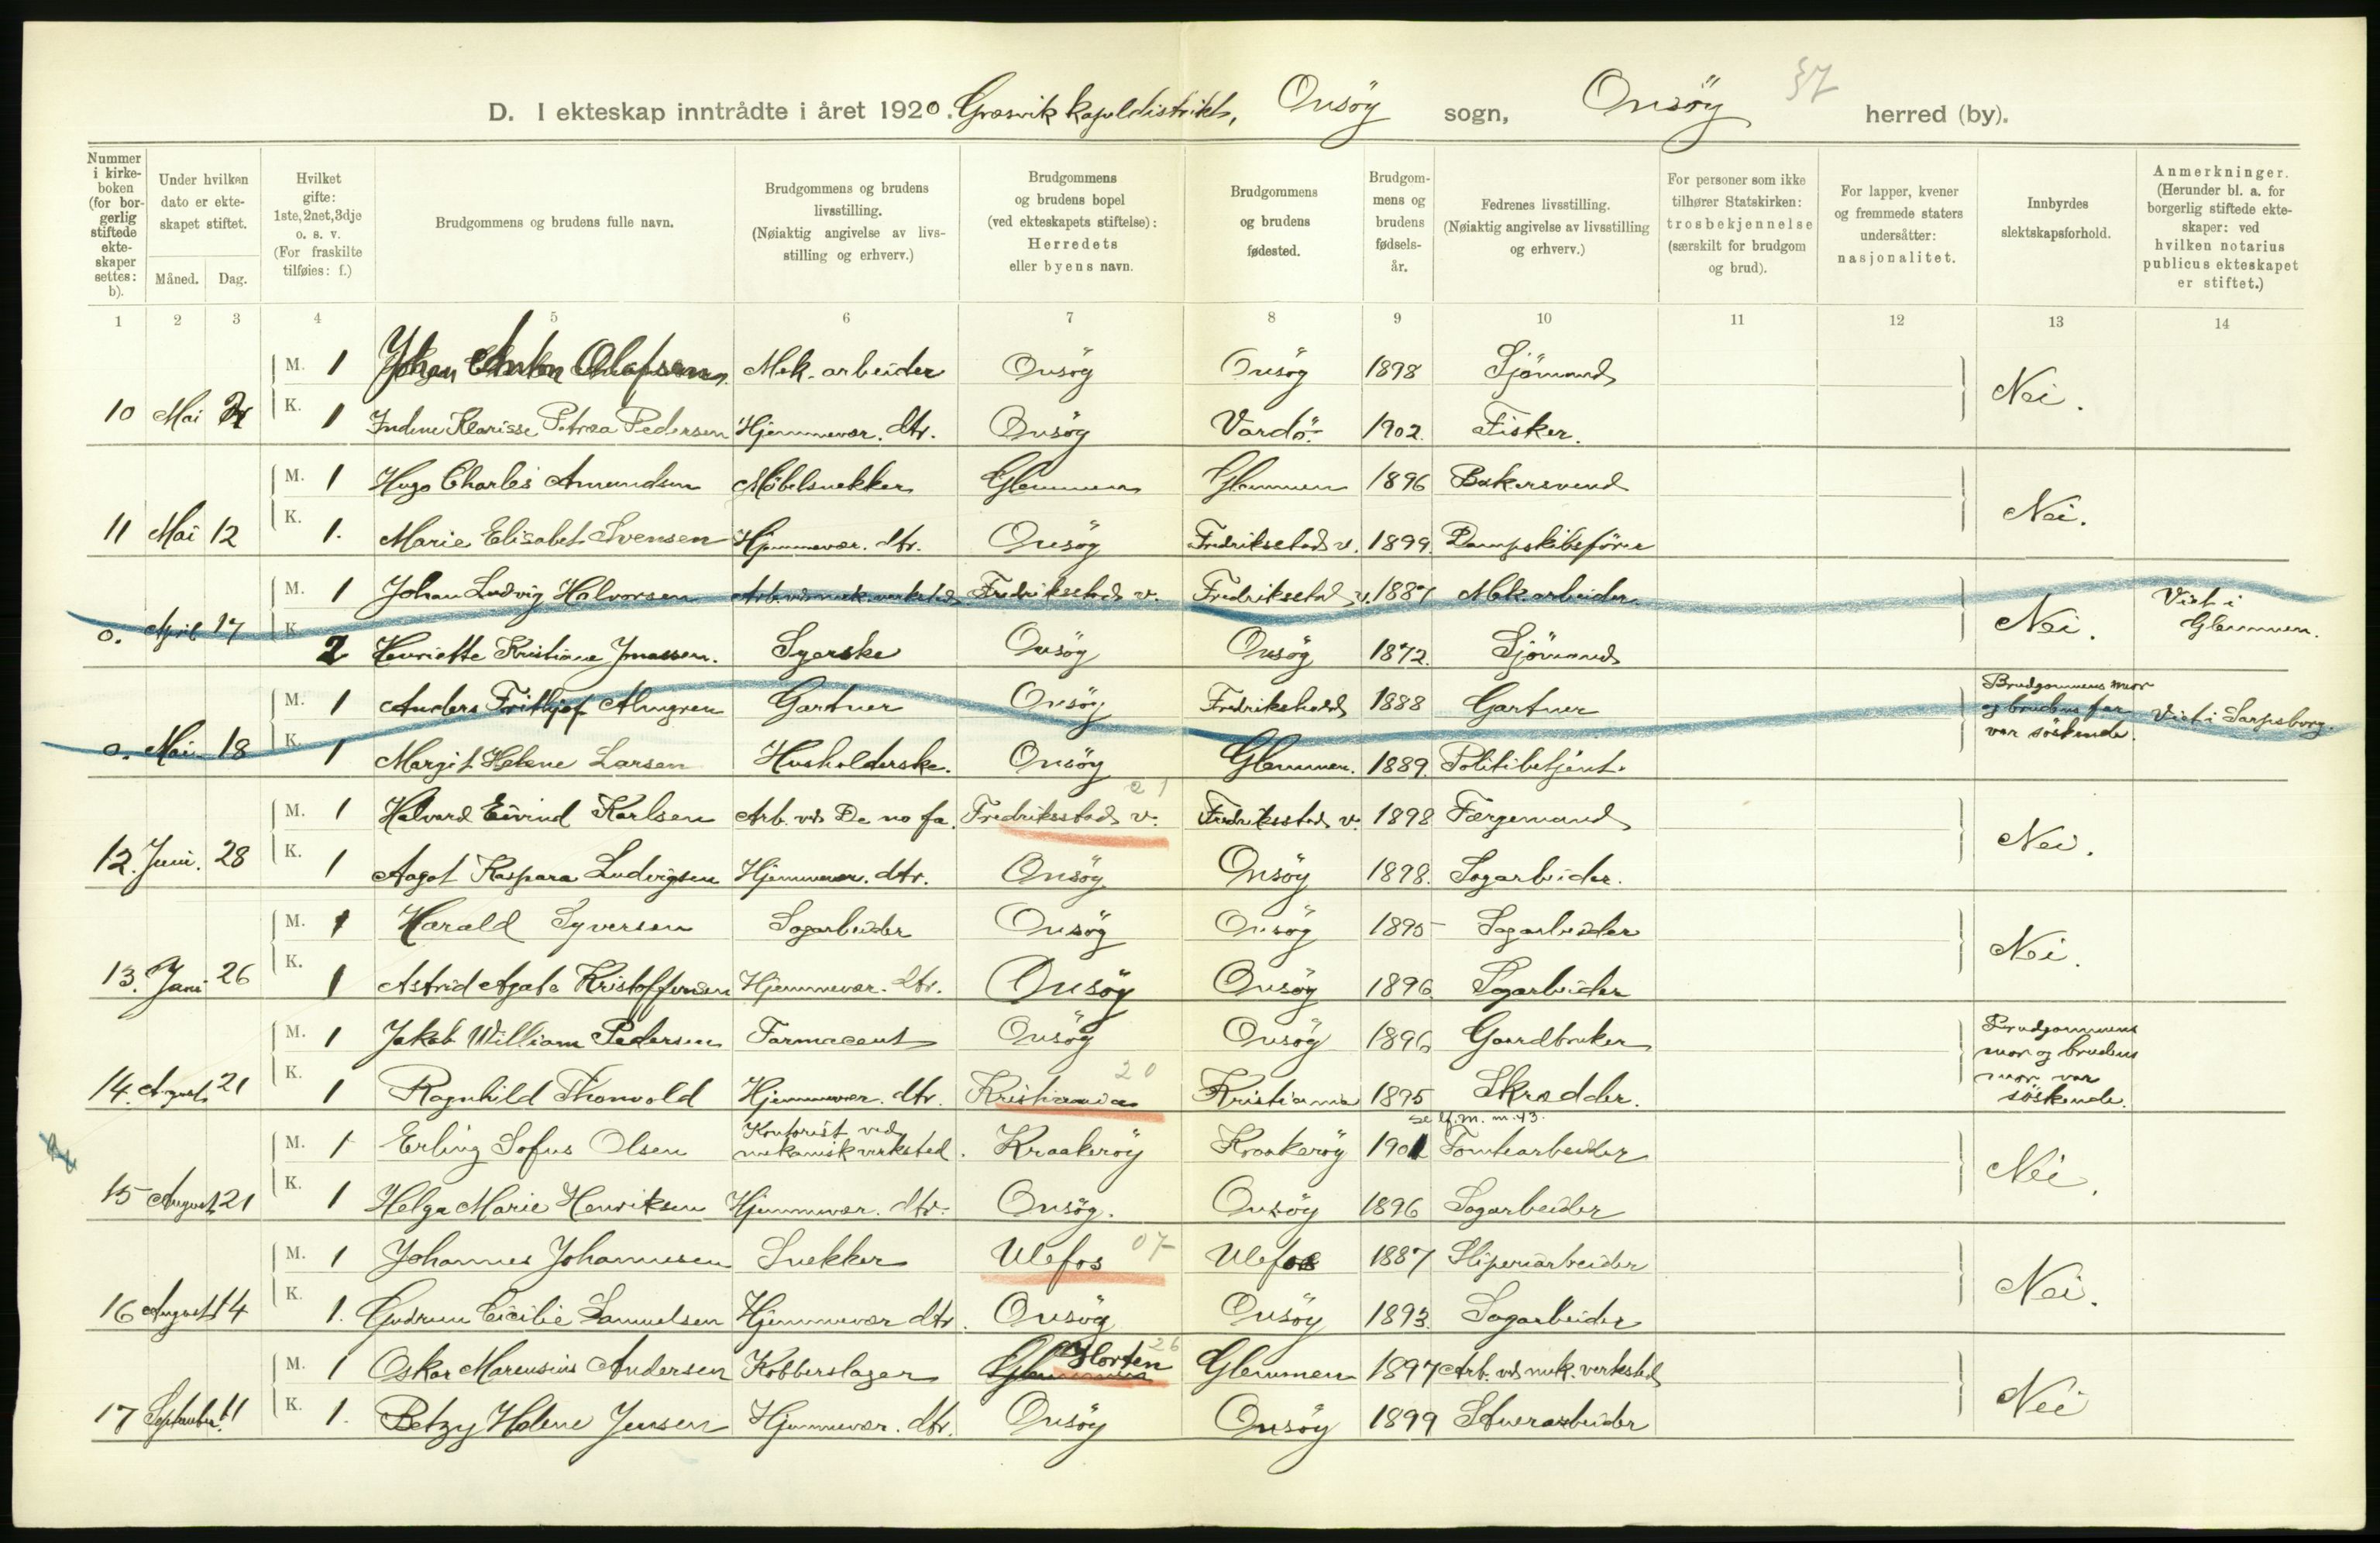 D. I ekteskap inntrådte i året 1920. Græsvik kapeldistrikt, Onsöy sogn, Onsöy herred (by). 37
Nummer i kirke-boken (for bor-gerlig stiftede ekte-skaper settes: b).
Under hvilken dato er ekte-skapet stiftet.
Måned. Dag.
Hvilket gifte: 1ste, 2net, 3dje o. s. v. (For fraskilte tilføies: f.)
Brudgommens og brudens fulle navn.
Brudgommens og brudens livsstilling. (Nøiaktig angivelse av livs-stilling og erhverv.)
Brudgommens og brudens bopel (ved ekteskapets stiftelse): Herredets eller byens navn.
Brudgommens og brudens fødested.
Brudgom-mens og brudens fødsels-år.
Fedrenes livsstilling. (Nøiaktig angivelse av livsstilling og erhverv.)
For personer som ikke tilhører Statskirken: trosbekjennelse (særskilt for brudgom og brud).
For lapper, kvener og fremmede staters undersåtter: nasjonalitet.
Innbyrdes slektskapsforhold.
Anmerkninger. (Herunder bl. a. for borgerlig stiftede ekte-skaper: ved hvilken notarius publicus ekteskapet er stiftet.)
1 2 3 4 5 6 7 8 9 10 11 12 13 14
M. 1 Johan Anton Olafsen Mek. arbeider Onsöy Onsöy 1898 Sjömand
10 Mai K. 1 Klarisse Petrea Pedersen Hjemmevær. dtr. Onsöy Vardö 1902. Fisker. Nei.
M. 1 Hugo Charles Amundsen Möbelsnekker Glemmen Glemmen 1896 Bakersvend
11 Mai 12 K. 1. Marie Elisabet Svensen Hjemmevær. dtr. Onsöy Fredriksstad v. 1899. Dampskibsförer Nei.
M. 1 Johan Ludvig Halvorsen Arb. ved mek. verksted. Fredriksstad v. Fredriksstad v. 1887 Mek. arbeider.
o. April 17 K. 2 Henriette Kristiane Jonassen. Syerske Onsöy Onsöy 1872. Sjömand Nei. Viet i Glemmen.
M. 1 Anders Frithjof Almgren Gartner Onsöy Fredrikshald 1888 Gartner
o. Mai 18 K. 1 Margit Helene Larsen Husholderske. Onsöy Glemmen. 1889. Politibetjent. Brudgommens mor og brudens far var söskende. Viet i Sarpsborg.
M. 1 Halvard Eivind Karlsen Arb. ved De no fa. Fredriksstad v. 21 Fredriksstad v. 1898 Færgemand
12. Juni. 28 K. 1 Aagot Kaspara Ludvigsen Hjemmevær. dtr. Onsöy Onsöy 1898. Sagarbeider. Nei.
M. 1 Harald Syversen Sagarbeider Onsöy Onsöy 1895 Sagarbeider
13. Juni 26 K. 1 Astrid Agate Kristoffersen Hjemmevær. dtr. Onsöy Onsöy 1896. Sagarbeider Nei.
M. 1 Jakob William Pedersen Farmaceut Onsöy Onsöy 1896 Gaardbruker
14. August 21 K. 1 Ragnhild Thorvold Hjemmevær. dtr. Kristiania 20 Kristiania 1895 Skrædder. Brudgommens mor og brudens mor var söskende.
M. 1 Erling Sofus Olsen Kontorist ved mekanisk verksted. Kraakeröy Kraakeröy 1901 Tomtearbeider
15 August 21 K. 1 Helga Marie Henriksen Hjemmevær. dtr. Onsöy. Onsöy 1896 Sagarbeider Nei.
M. 1 Johannes Johannesen Snekker Ulefos 07 Ulefos 1887 Sliperiarbeider
16 August 14 K. 1. Gudrun Cecilie Samuelsen Hjemmevær dtr. Onsöy Onsöy 1893. Sagarbeider Nei.
M. 1 Oskar Marensius Andersen Kobberslager Glemmen Horten 26 Glemmen 1897 Arb. ved mek. verksted
17 September 11 K. 1. Betzy Helene Jensen Hjemmevær. dtr. Onsöy Onsöy 1899 Stuerarbeider Nei